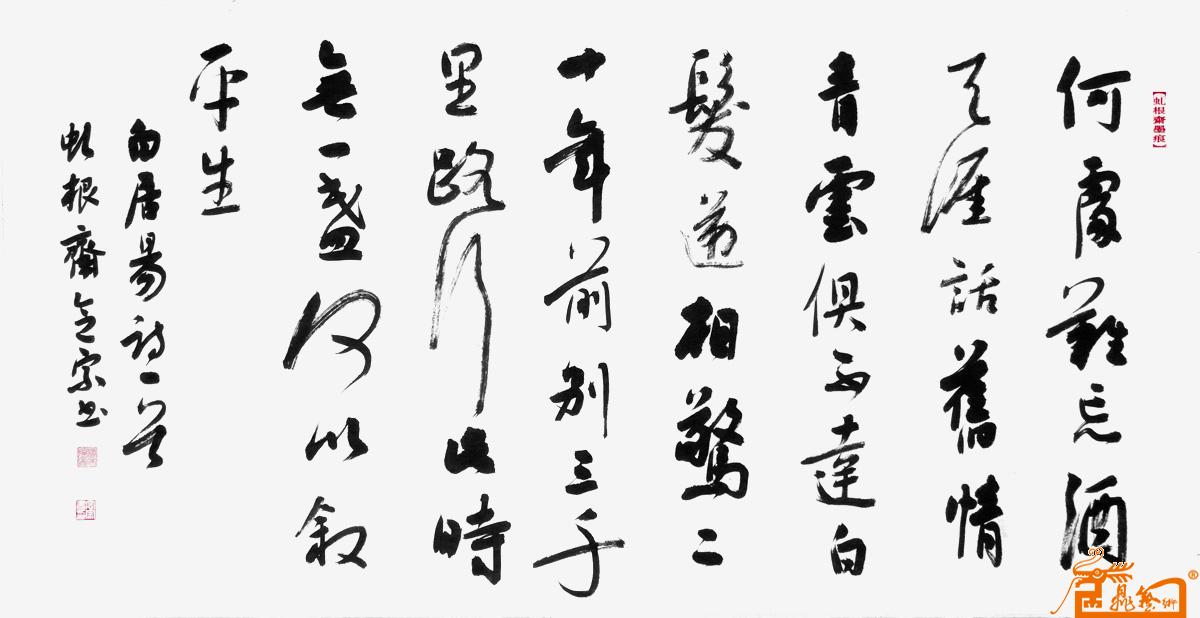 【虬根齋墨痕】
何處難忘酒
天涯話舊情
青雲俱不達白
髮遞相驚二
十年前別三千
里路行此時
無一盞何以敘
平生
白居易詩一首
虬根齋宗书
藝術®